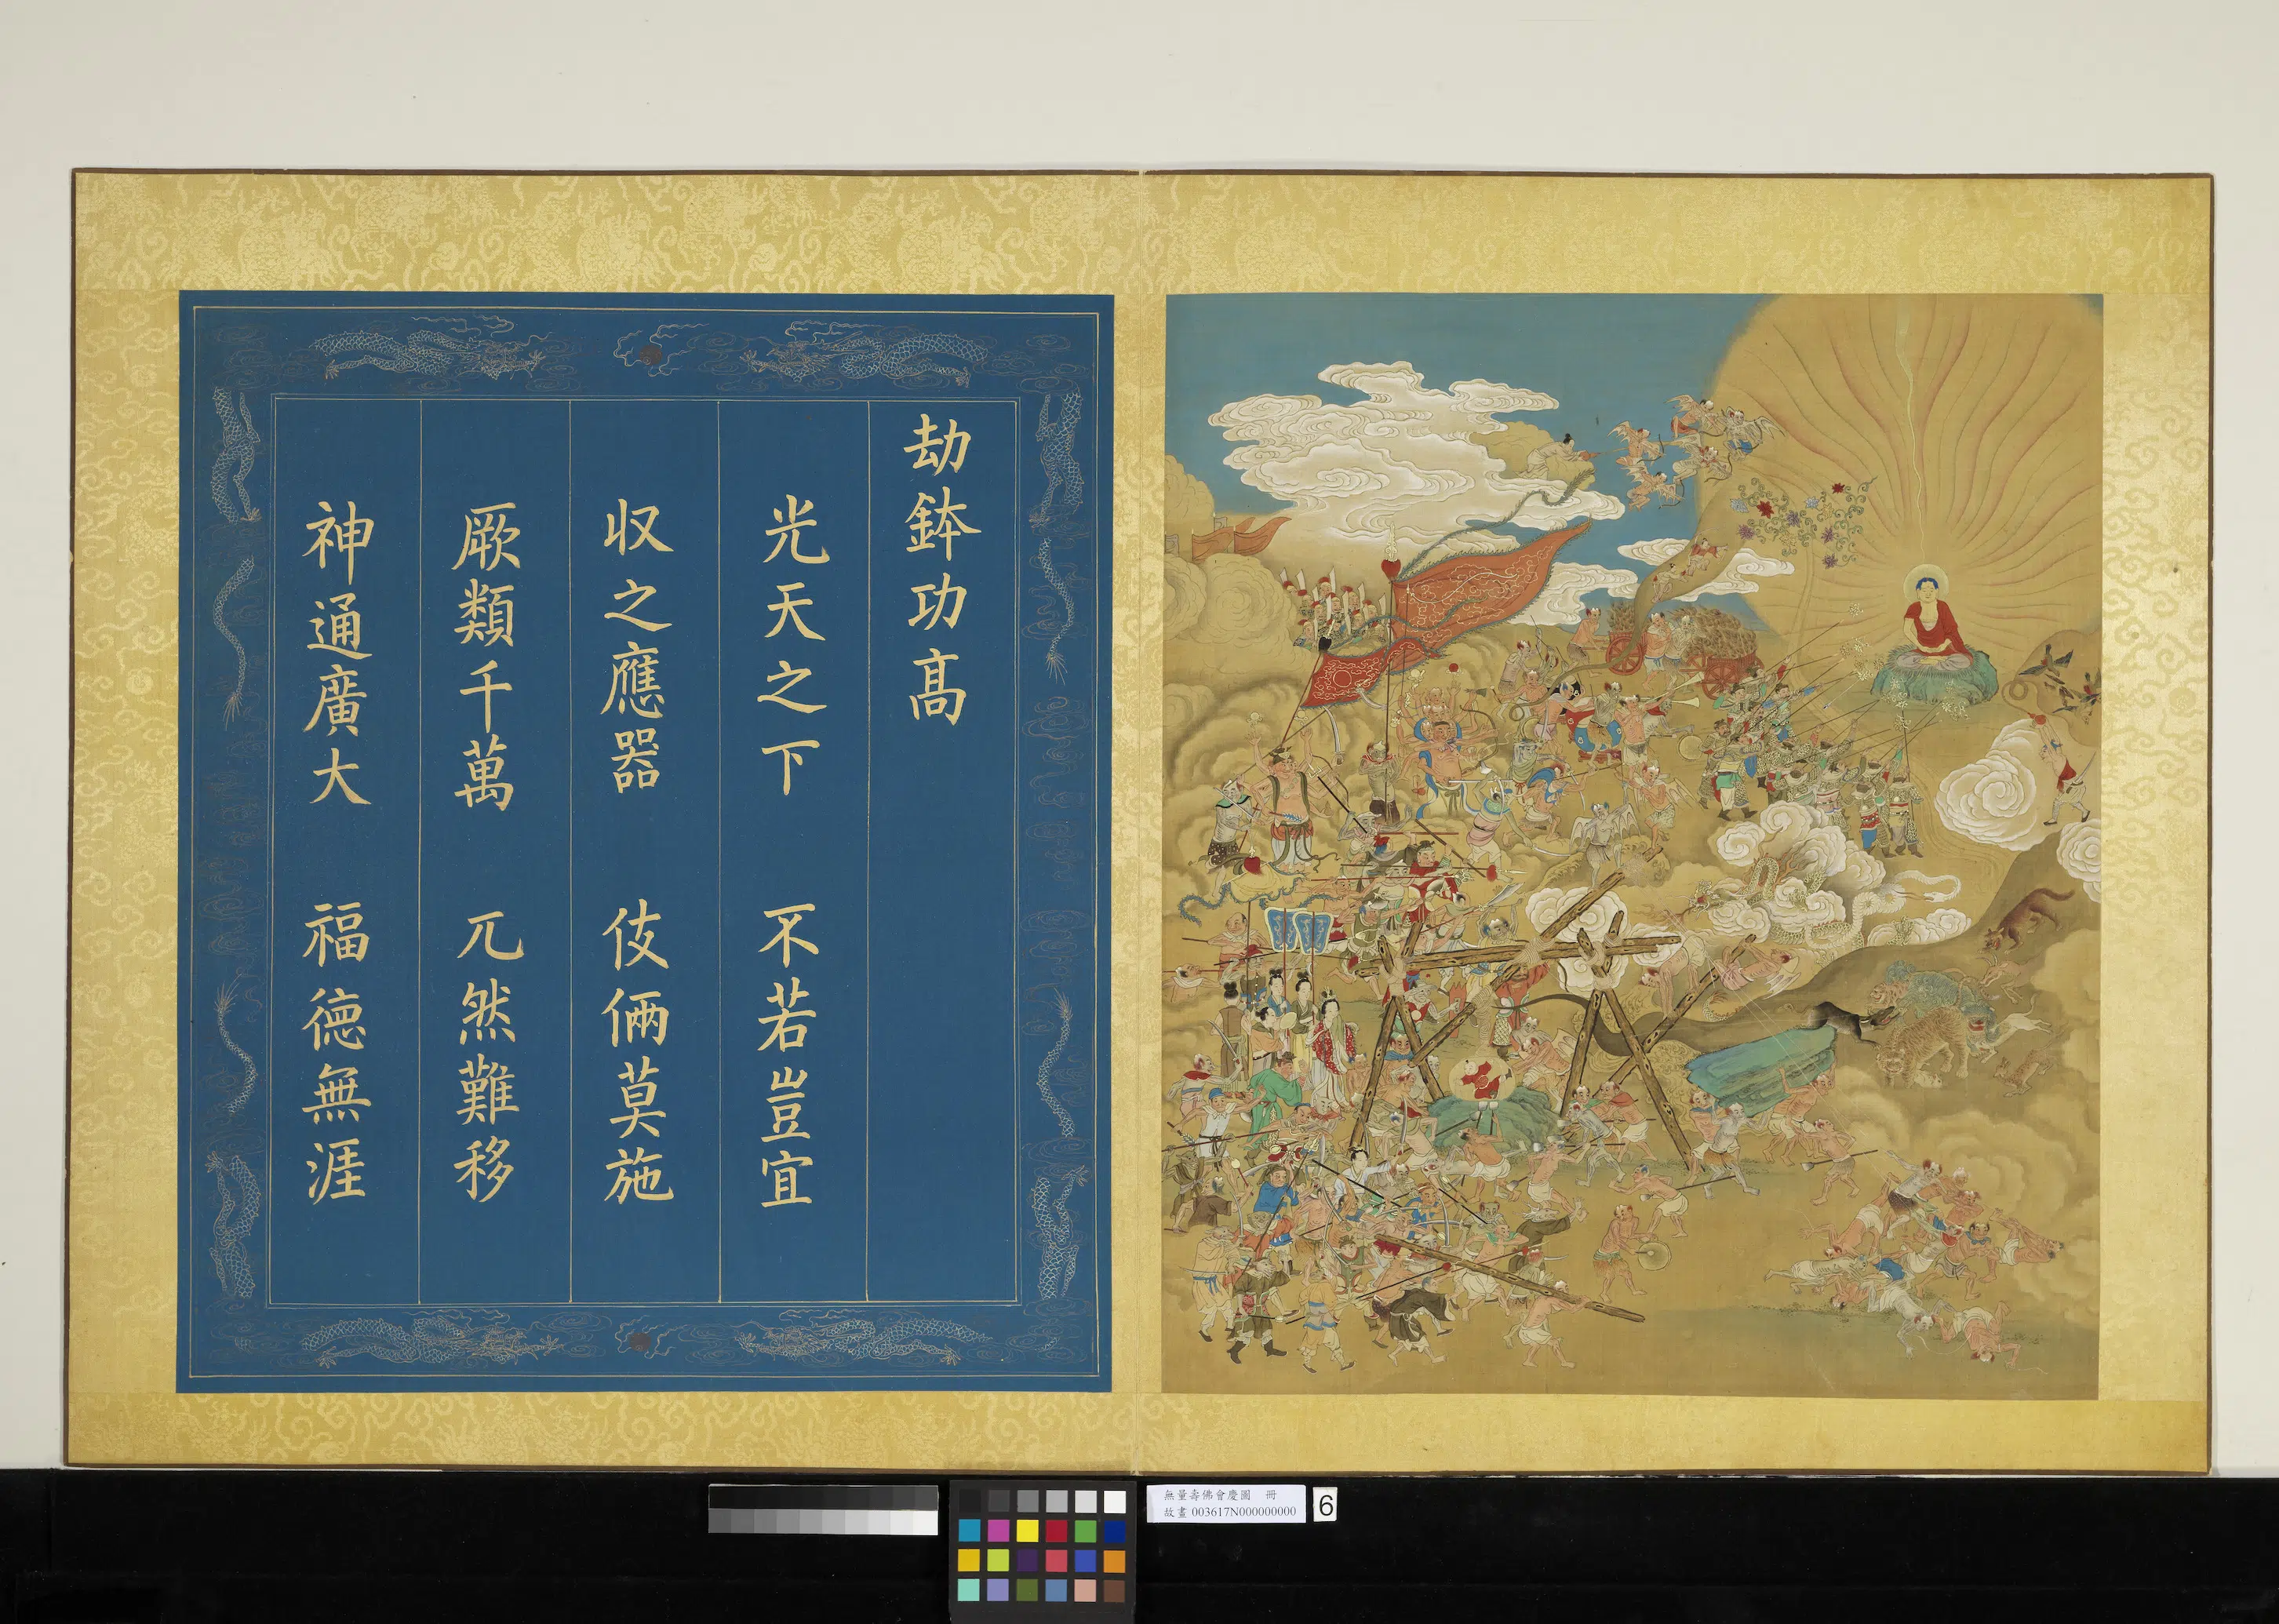 劫鉢功高
光天之下　不若豈宜
収之應器　伎倆莫施
厥類千萬　兀然難移
神通廣大　福徳無涯
無量壽佛會慶圖　冊
故畫 003617N000000000
6